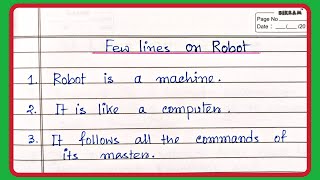 BIKRAM
Page No
Date : __/__/20
Few lines on Robot
1. Robot is a machine.
2. It is like a computer.
3. It follows all the commands of
its master.